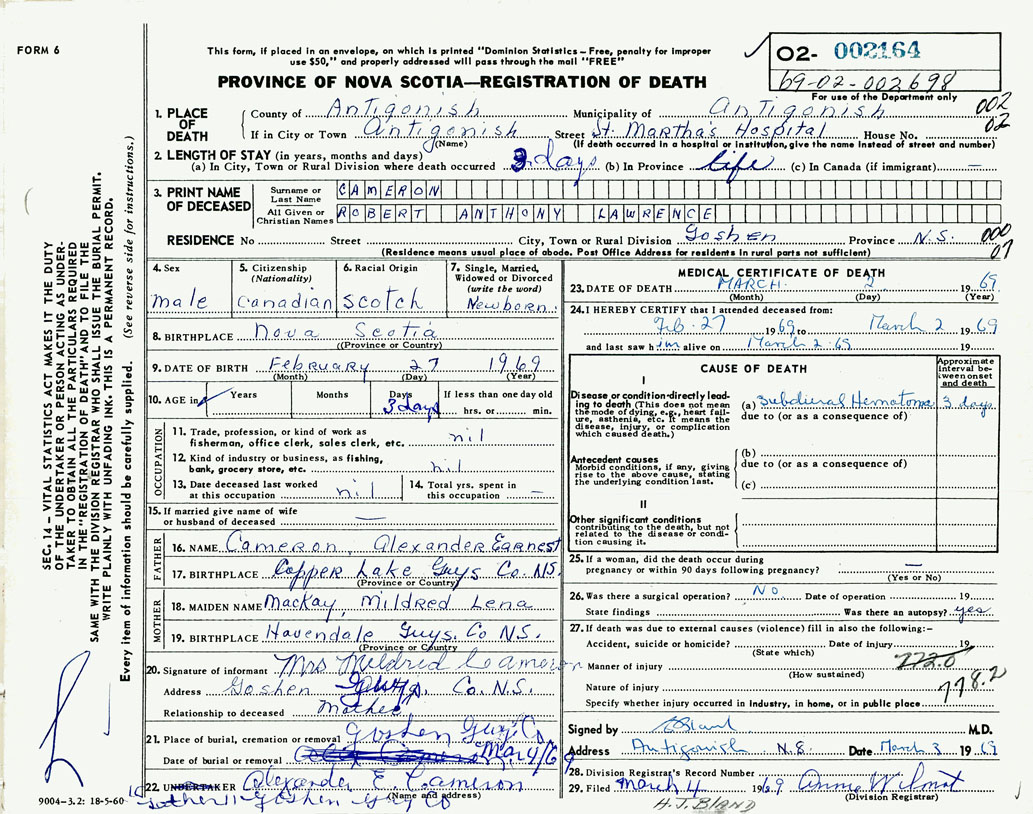 FORM 6
This form, if placed in an envelope, on which is printed "Dominion Statistics – Free, penalty for improper
use $50," and properly addressed will pass through the mail "FREE"
PROVINCE OF NOVA SCOTIA—REGISTRATION OF DEATH
02- 002164
69-02-002698
For use of the Department only
002
02
1. PLACE OF DEATH
County of Antigonish Municipality of Antigonish
If in City or Town Antigonish Street St. Martha's Hospital House No.
(Name) (If death occurred in a hospital or institution, give the name instead of street and number)
2. LENGTH OF STAY (in years, months and days)
(a) In City, Town or Rural Division where death occurred 3 days (b) In Province life (c) In Canada (if immigrant) —
3. PRINT NAME OF DECEASED
Surname or Last Name CAMERON
All Given or Christian Names ROBERT ANTHONY LAWRENCE
RESIDENCE No Street City, Town or Rural Division Goshen Province N.S.
000
07
(Residence means usual place of abode. Post Office Address for residents in rural parts not sufficient)
4. Sex male
5. Citizenship (Nationality) Canadian
6. Racial Origin Scotch
7. Single, Married, Widowed or Divorced (write the word) Newborn
8. BIRTHPLACE Nova Scotia
((Province or Country)
9. DATE OF BIRTH February 27 1969
(Month) (Day) (Year)
10. AGE in Years Months Days 3 days If less than one day old hrs. or min.
OCCUPATION
11. Trade, profession, or kind of work as fisherman, office clerk, sales clerk, etc. nil
12. Kind of industry or business, as fishing, bank, grocery store, etc. nil
13. Date deceased last worked at this occupation nil
14. Total yrs. spent in this occupation —
15. If married give name of wife or husband of deceased —
FATHER
16. NAME Cameron, Alexander Earnest
17. BIRTHPLACE Copper Lake Guys Co N.S.
(Province or Country)
MOTHER
18. MAIDEN NAME MacKay, Mildred Lena
19. BIRTHPLACE Havendale Guys. Co N.S.
(Province or Country)
20. Signature of informant Mrs Mildred Cameron
Address Goshen Guys. Co. N.S.
Relationship to deceased Mother
21. Place of burial, cremation or removal Goshen Guys Co
Date of burial or removal Mar 4/69
22. UNDERTAKER Alexander E. Cameron
(Name and address)
father Goshen Guy Co
9004–3.2: 18-5-60
MEDICAL CERTIFICATE OF DEATH
23. DATE OF DEATH MARCH 2 1969
(Month) (Day) (Year)
24. I HEREBY CERTIFY that I attended deceased from:
Feb. 27 1969 to March 2 1969
and last saw him alive on March 2 69 19
CAUSE OF DEATH
Approximate interval between onset and death
I
Disease or condition directly leading to death (This does not mean the mode of dying, e.g., heart failure, asthenia, etc. It means the disease, injury, or complication which caused death.)
(a) Subdural Hematoma 3 days
due to (or as a consequence of)
Antecedent causes
Morbid conditions, if any, giving rise to the above cause, stating the underlying condition last.
(b)
due to (or as a consequence of)
(c)
II
Other significant conditions contributing to the death, but not related to the disease or condition causing it.
25. If a woman, did the death occur during pregnancy or within 90 days following pregnancy? —
(Yes or No)
26. Was there a surgical operation? No Date of operation 19
State findings Was there an autopsy? yes
27. If death was due to external causes (violence) fill in also the following:—
Accident, suicide or homicide? Date of injury 19
(State which)
772.0
Manner of injury
(How sustained)
778.2
Nature of injury
Specify whether injury occurred in industry, in home, or in public place
Signed by Bland M.D.
Address Antigonish N.S. Date March 3 1969
28. Division Registrar's Record Number
29. Filed March 4 1969 Anne Wilmot
(Division Registrar)
H.J. BLAND
SEC. 14 – VITAL STATISTICS ACT MAKES IT THE DUTY
OF THE UNDERTAKER OR PERSON ACTING AS UNDER-
TAKER TO OBTAIN ALL THE PARTICULARS REQUIRED
IN THE "REGISTRATION OF DEATH" AND TO FILE THE
SAME WITH THE DIVISION REGISTRAR WHO SHALL ISSUE THE BURIAL PERMIT.
WRITE PLAINLY WITH UNFADING INK. THIS IS A PERMANENT RECORD.
Every item of information should be carefully supplied. (See reverse side for instructions.)